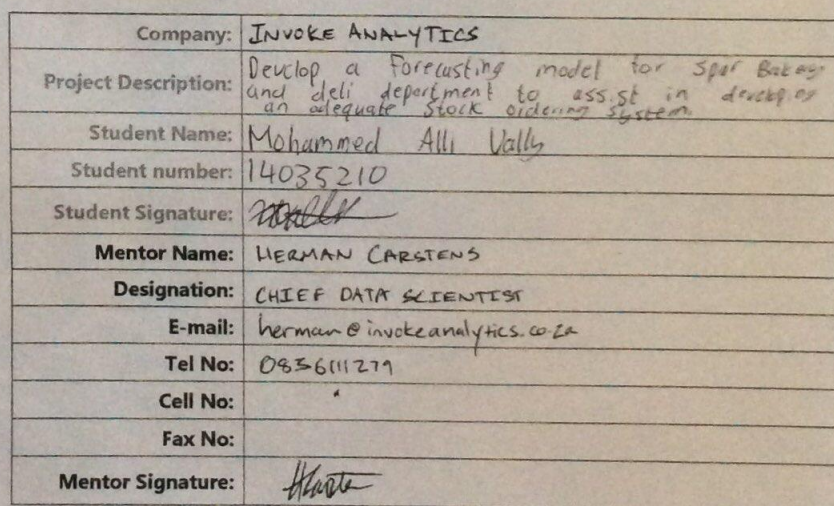 Company: INVOKE ANALYTICS
Project Description: Develop a forecasting model for Spar Bakery
and deli department to assist in developing
an adequate stock ordering system.
Student Name: Mohammed Alli Vally
Student number: 14035210
Student Signature:
Mentor Name: HERMAN CARSTENS
Designation: CHIEF DATA SCIENTIST
E-mail: herman@invokeanalytics.co.za
Tel No: 0836111279
Cell No:
Fax No:
Mentor Signature: